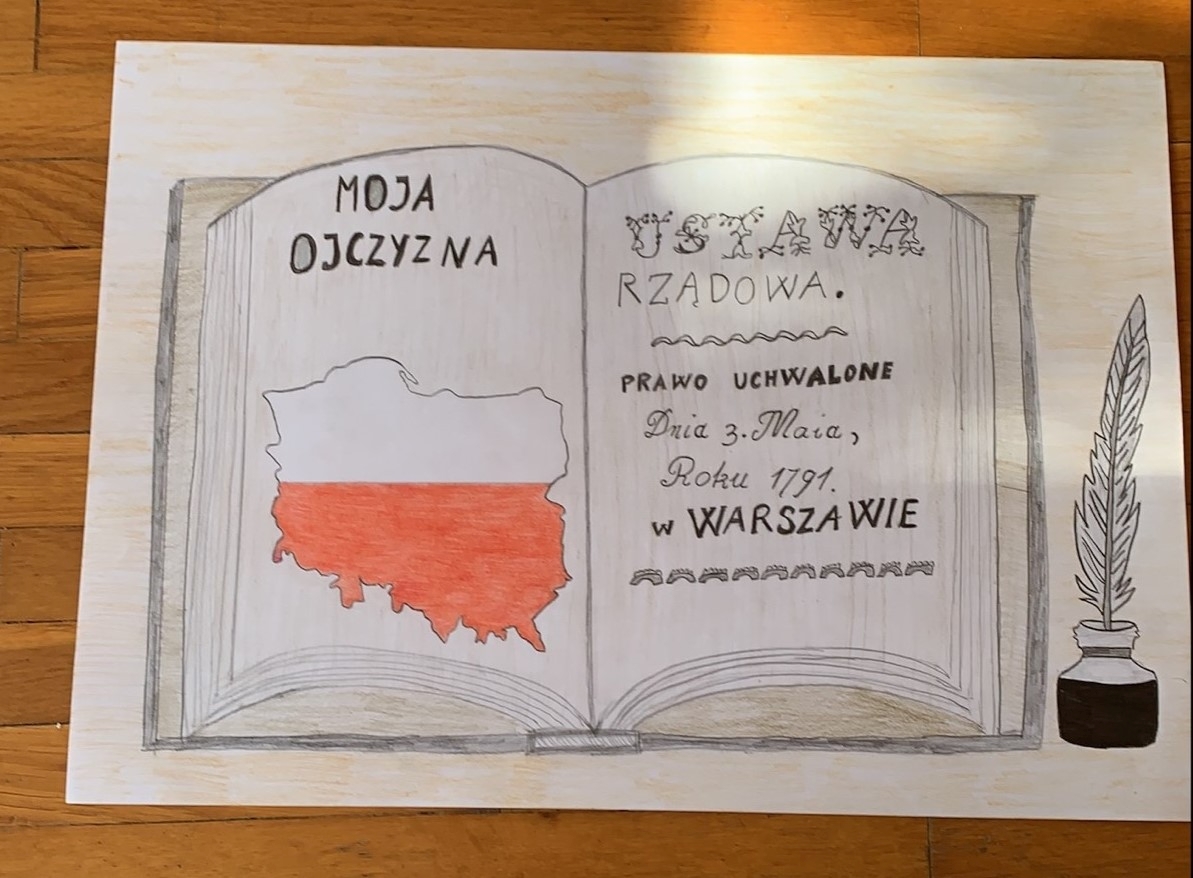 MOJA
OJCZYZNA
USTAWA
RZĄDOWA.
PRAWO UCHWALONE
Dnia 3. Maia,
Roku 1791.
w WARSZAWIE